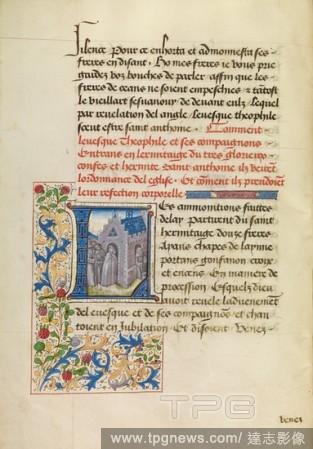 silence Pour ce enhorta et admonnesta ses
freres en disant. Ho mes freres ie vous prie
gardez voz bouches de parler affin que les
freres de ceans ne soient empeschies & tätost
le vieillart sesuanouy de deuant eulz Lequel
par reuelation del angle Leuesque theophile
sceut estre saint anthome. Comment
leuesque Theophile et ses compaignons
Entrans en lermitaige du tres glorieux
confes et hermite saint anthome ilz veirent
lordonnance del eglise. Et cõment ilz prendoient
leur refection corporelle
Les ammonitions faittes
delay Partirent du saint
hermitaige douze freres
Aians chapes de la prime
portans gonfanon croix
et encens En maniere de
procession Esquelz dieu
auoit reuele laduenement
del euesque et de ses compaignõs et chan
toient en Jubilation Et disoient Venez
venez
TPG
www.tpgnews.com/達志影像